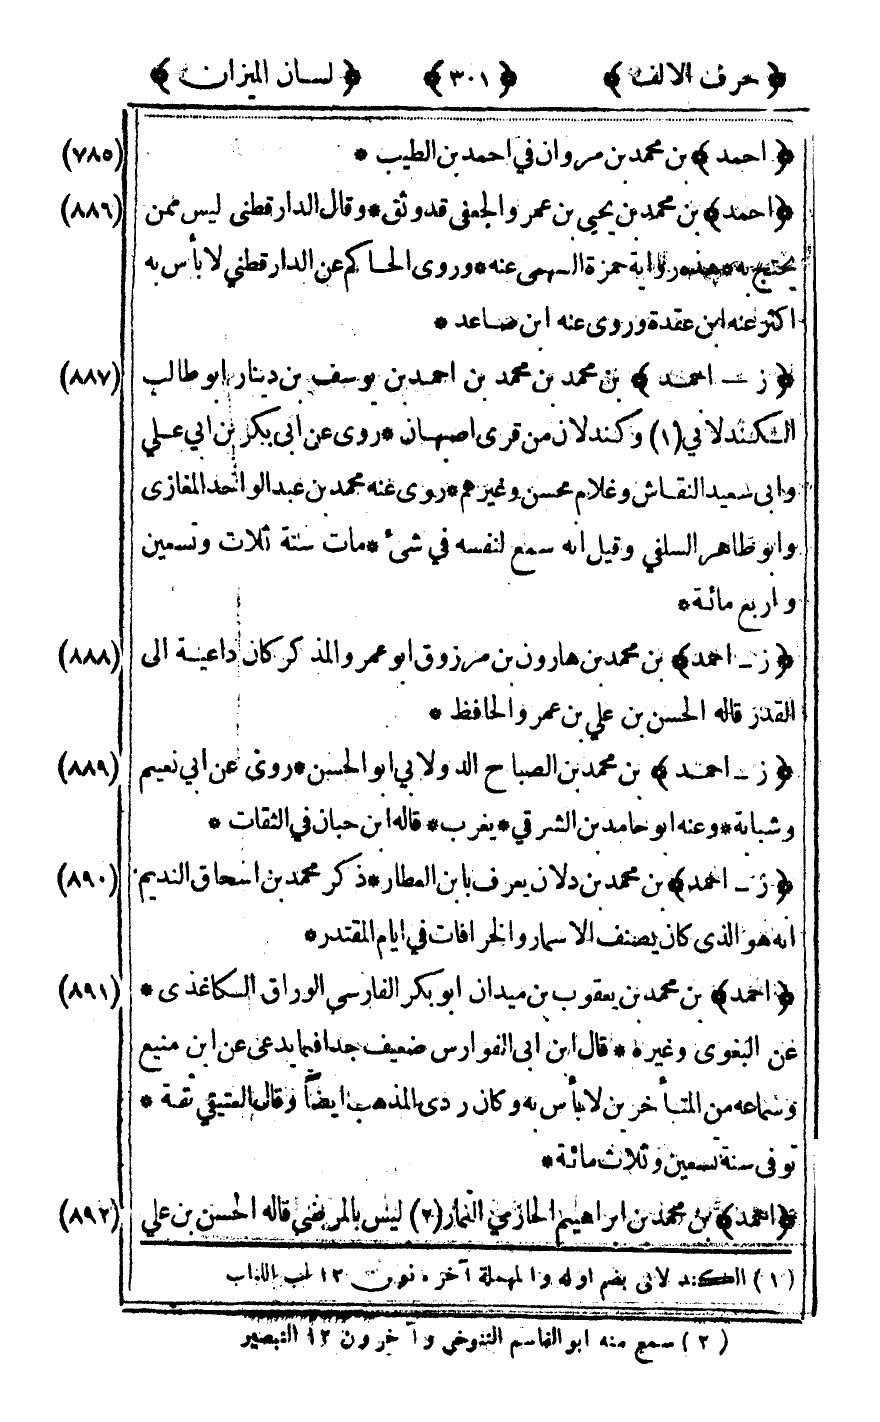 ﴿ حرف الالف ﴾ ﴿ ٣٠١ ﴾ ﴿ لسان الميزان ﴾
﴿ احمد ﴾ بن محمد بن مروان في احمد بن الطيب * (٧٨٥)
﴿ احمد ﴾ بن محمد بن يحيى بن عمرو الجعفى قد وثق * وقال الدارقطنى ليس ممن (٨٨٦)
يحتج به * هذه رواية حمزة السهمى عنه * وروى الحاكم عن الدارقطني لا بأس به
اكثر عنه ابن عقدة وروى عنه ابن صاعد *
﴿ ز ــ احمد ﴾ بن محمد بن محمد بن احمد بن يوسف بن دينار ابو طالب (٨٨٧)
الكندلاني (١) وكندلان من قرى اصبهان * روى عن ابى بكر بن ابي علي
وابى سعيد النقاش وغلام محسن وغيرهم * روى عنه محمد بن عبد الواحد المغازى
وابو طاهر السلفي وقيل انه سمع لنفسه في شئ * مات سنة ثلاث وتسعين
واربع مائة *
﴿ ز ــ احمد ﴾ بن محمد بن هارون بن مرزوق ابو عمرو المذكر كان داعية الى (٨٨٨)
القدر قاله الحسن بن علي بن عمرو الحافظ *
﴿ ز ــ احمد ﴾ بن محمد بن الصباح الدولابي ابو الحسن * روى عن ابي نعيم (٨٨٩)
وشبابة * وعنه ابو حامد بن الشرقي * يغرب * قاله ابن حبان في الثقات *
﴿ ز ــ احمد ﴾ بن محمد بن دلان يعرف بابن العطار * ذكر محمد بن اسحاق النديم (٨٩٠)
انه هو الذى كان يصنف الاسمار والخرافات في ايام المقتدر *
﴿ احمد ﴾ بن محمد بن يعقوب بن ميدان ابو بكر الفارسي الوراق الكاغذى * (٨٩١)
عن البغوى وغيره * قال ابن ابى الفوارس ضعيف جدا فيما يدعى عن ابن منيع
وسماعه من المتأخرين لا بأس به وكان ردى المذهب ايضاً وقال العتيقي ثقة *
توفى سنة تسعين وثلاث مائة *
﴿ احمد ﴾ بن محمد بن ابراهيم الحازمي التمار (٢) ليس بالمرضي قاله الحسن بن علي (٨٩٢)
(١) الكندلانى بضم اوله والمهملة آخره نون ١٢ لب اللباب
(٢) سمع منه ابو القاسم التنوخى وآخرون ١٢ التبصير